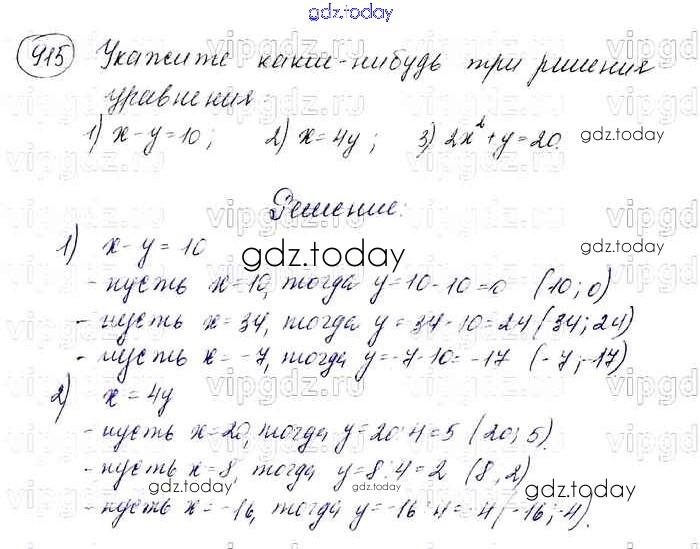 gdz.today
915 Укажите какие-нибудь три решения
уравнения:
1) x - y = 10; 2) x = 4y; 3) 2x² + y = 20.
gdz.today
Решение:
1) x - y = 10
gdz.today
- пусть x = 10, тогда y = 10 - 10 = 0 (10; 0)
- пусть x = 34, тогда y = 34 - 10 = 24 (34; 24)
- пусть x = -7, тогда y = -7 - 10 = -17 (-7; -17)
2) x = 4y
- пусть x = 20, тогда y = 20 : 4 = 5 (20; 5).
- пусть x = 8, тогда y = 8 : 4 = 2 (8; 2)
gdz.today gdz.today
- пусть x = -16, тогда y = -16 : 4 = -4 (-16; -4).